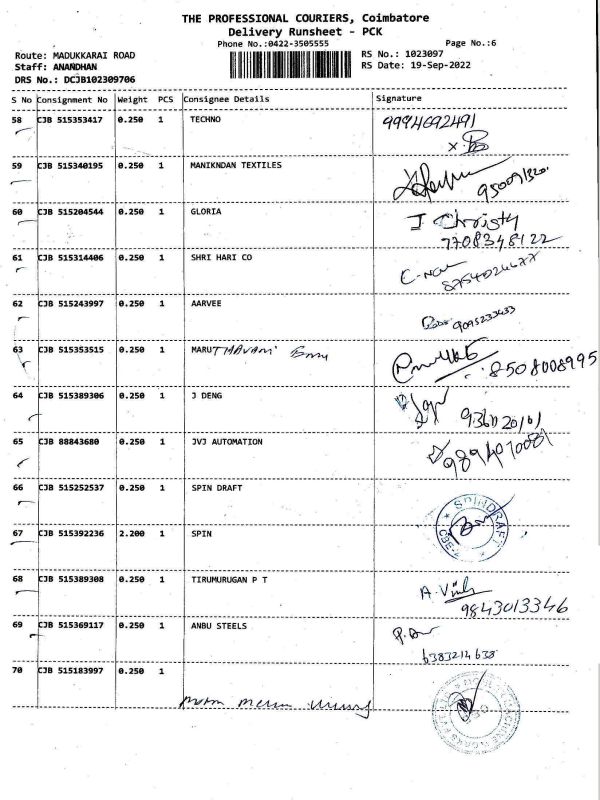 THE PROFESSIONAL COURIERS, Coimbatore
Delivery Runsheet - PCK
Phone No.:0422-3505555 Page No.:6
Route: MADUKKARAI ROAD RS No.: 1023097
Staff: ANANDHAN RS Date: 19-Sep-2022
DRS No.: DCJB102309706
S No Consignment No Weight PCS Consignee Details Signature
58 CJB 515353417 0.250 1 TECHNO 9994692491
59 CJB 515340195 0.250 1 MANIKNDAN TEXTILES
60 CJB 515204544 0.250 1 GLORIA J Christy
7708348122
61 CJB 515314406 0.250 1 SHRI HARI CO
8754024677
62 CJB 515243997 0.250 1 AARVEE
9095233433
63 CJB 515353515 0.250 1 MARUTHAVANI
8508008995
64 CJB 515389306 0.250 1 J DENG
65 CJB 88843680 0.250 1 JVJ AUTOMATION
66 CJB 515252537 0.250 1 SPIN DRAFT SPINDRAFT
67 CJB 515392236 2.200 1 SPIN
68 CJB 515389308 0.250 1 TIRUMURUGAN P T
9843013346
69 CJB 515369117 0.250 1 ANBU STEELS
6383214638
70 CJB 515183997 0.250 1